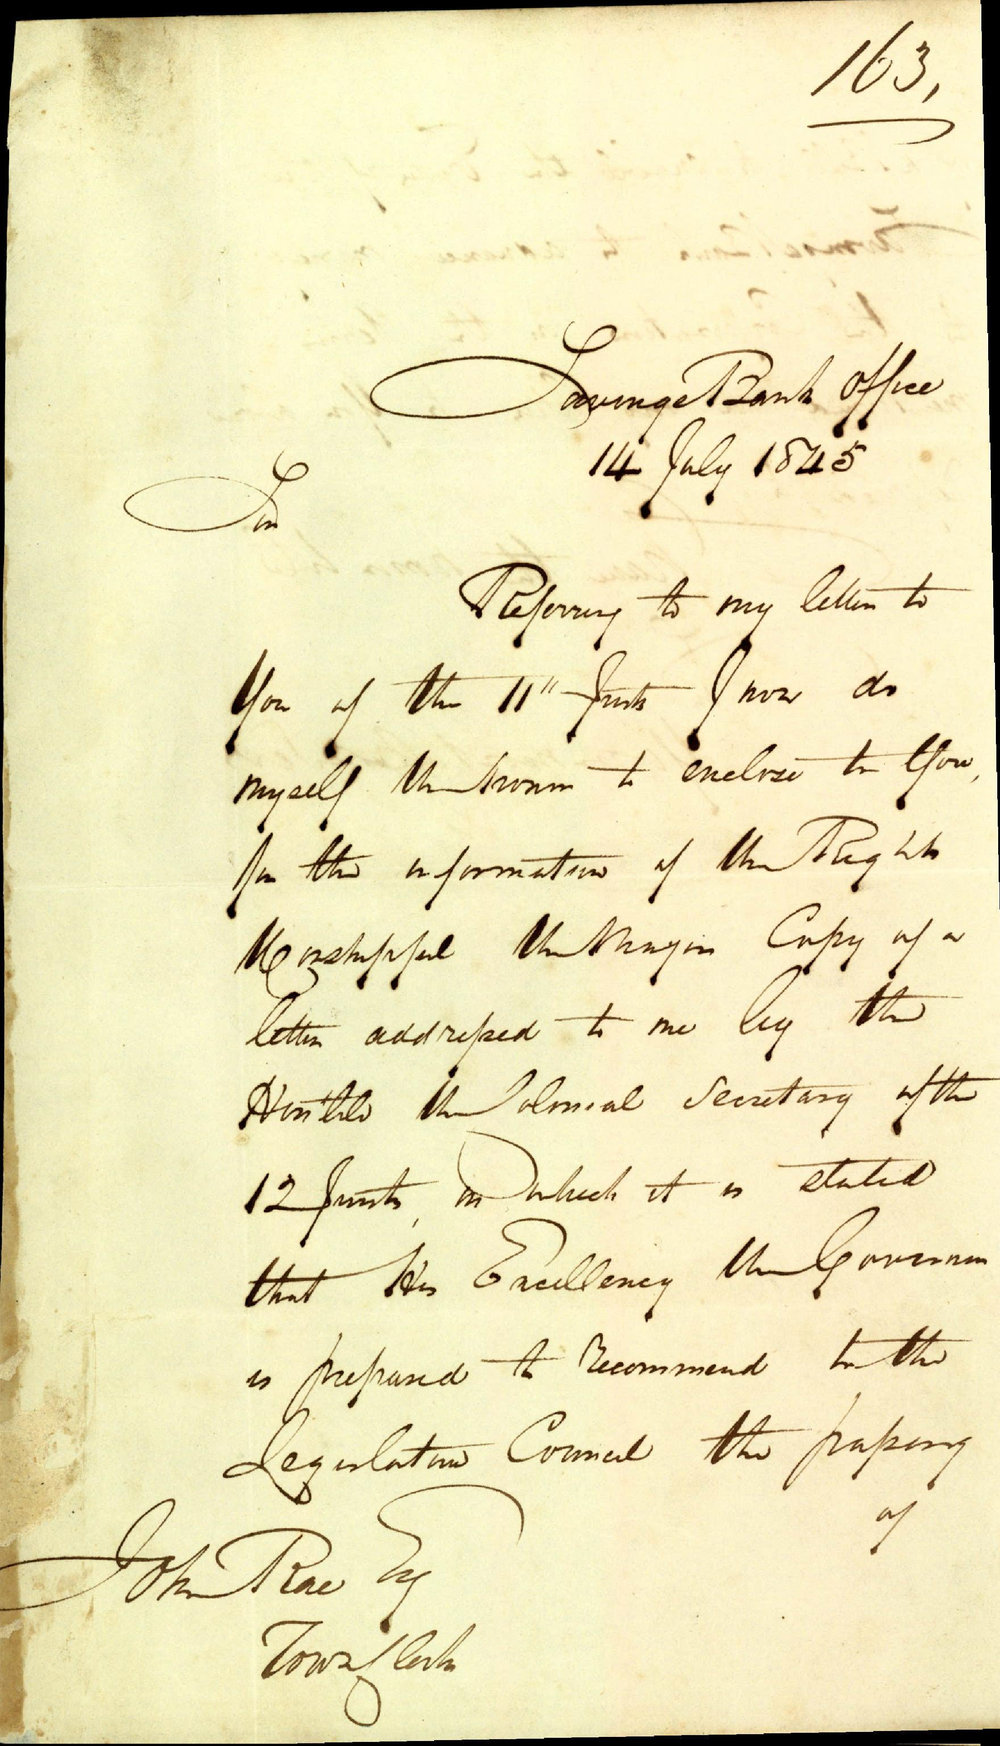 163,
Savings Bank Office
14 July 1845
Sir
Referring to my letter to
You of the 11" Inst I now do
myself the honor to enclose to You,
for the information of the Right
Worshipful the Mayor Copy of a
letter addressed to me by the
Honble the Colonial Secretary of the
12 Inst, in which it is stated
that His Excellency the Governor
is prepared to recommend to the
Legislative Council the passing
of
John Rae Esq
Town Clerk